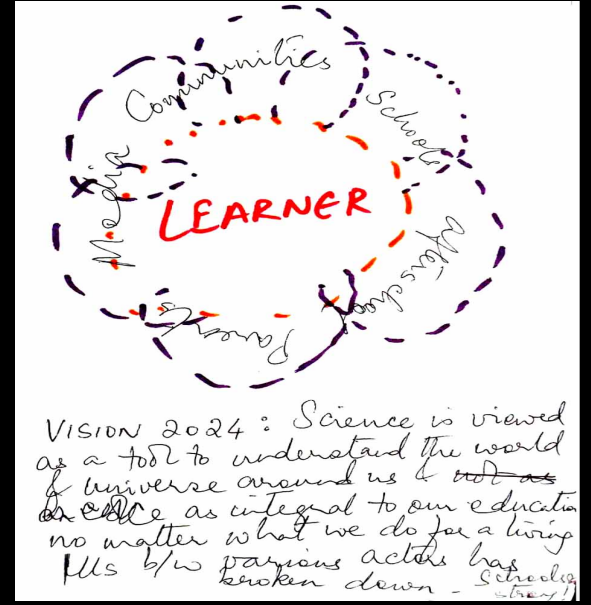 Communities
Schools
Media
LEARNER
Afterschool
Parents
VISION 2024 : Science is viewed
as a tool to understand the world
& universe around us & not as
as integral to our education
no matter what we do for a living
b/w various actors has
broken down - Schools
stray!